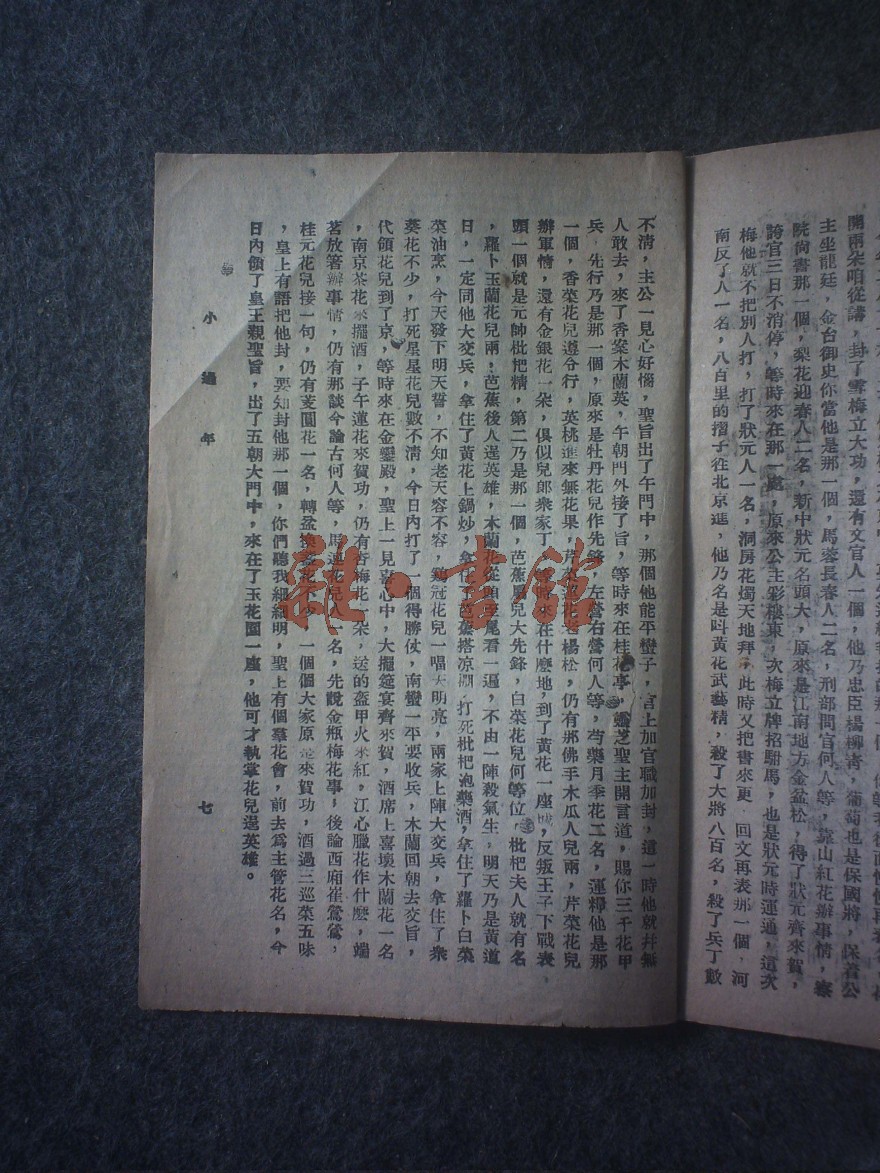 開兩朶咱從講，封了雪梅立大功，還有文官人一個，他乃忠臣楊柳青，葡萄也是保國將，保着公
主坐龍廷，金台御史你當他是那一個，馬蓉長春人二名，刑部問官何人等，靠山紅花辦事情，察
院尙書那一個，梨花迎春人二名，新中狀元名頭大，原來是江南地方金盆松，得了狀元齊來賀，
誇官三日不消停，等時來在那一處，原來公主彩樓東，次梅立牌招駙馬，也是狀元時運通，這次
梅他就不把別人打，打了狀元人一名，洞房花燭天地拜，此時又把書來更，回文再表那一個，河
南反了人一名，八百里的摺子往北京進，他乃名是呌黃花武藝精，殺了大將八百名，殺了兵丁數
不淸，主公一見心好惱，聖旨出了午門中，那個他能平蠻子，官上加官職加封，這一時他就幷無
人敢去，來了香案木蘭英，午朝門外接了旨，等時來在桂花亭，靈芝聖主開言道，賜你三千花甲
兵，先行乃是那一個，原來是牡丹花兒作先鋒，左營右營何人等，芍藥月季花二名，運糧他是那
一個，香菜花兒遵分行，英桃進來無花果，芹菜蓮花老楊松，仍有那佛手木瓜人兒兩，芹菜花兒
辦軍情，還有金銀花一朵，俱似兒郎衆家丁，等時來在什麽地，到了黃花一座城，反叛王子下戰表，
頭一個就是元帥枇杷精，第二乃是那一個，芭蕉風兒大先鋒，白菜花兒何等位，枇杷夫人就有名
，蘿卜玉蘭花兒兩，芭蕉後人逞英雄，木蘭花從頭至尾看一遍，不由一陣殺氣生，明天乃是黃道
日，一定同他大交兵，拿住了黃花上鍋炒，拿住了芭蕉搭凉棚，打死枇杷泡藥酒，拿住了蘿卜白菜
菜油烹，今天發下明天誓，不知老天容不容，鷄冠花兒一唱大明亮，兩家上陣大交兵，拿住了衆
葵花不少，打死星星花兒數不淸，今日內打了一個得勝仗，南蠻一平要收兵，木蘭回朝去交旨，
代領花兒到了京，等時來在金鑾殿，聖上一見喜心中，大擺筵宴齊來賀，酒席上喜壞木蘭花一名
，南京茶花來擺酒，子午蓮花來賀功，仍有杏梅花一朶，送的盔甲火來紅，江心臘花作什麽，端
茗放箸辦事情，仍有那談今論古何人等，馬蓮花兒人一名，先說金瓶梅花事，後論西廂崔鶯鶯，
桂元花兒接一句，仍有芰園花一名，轉盆換盞花不少，一個個大家原是來賀功，酒過三巡菜五味
，皇上有語把他封，要知封他那一個，你們聽我細細明，聖上有個羣花會，前去爲主管花名，今
日內領了皇王親聖旨，出了五朝大門中，來在了玉花園一座，他可才執掌花兒逞英雄。
小過年
七
雜·書館